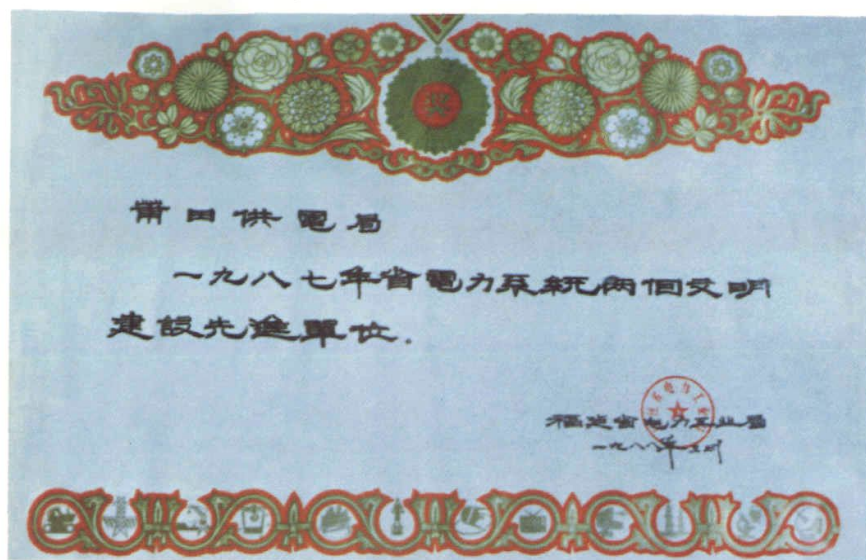 奖
莆田供電局
一九八七年省電力系統两個文明
建設先進單位.
福建省电力工业局
一九八八年